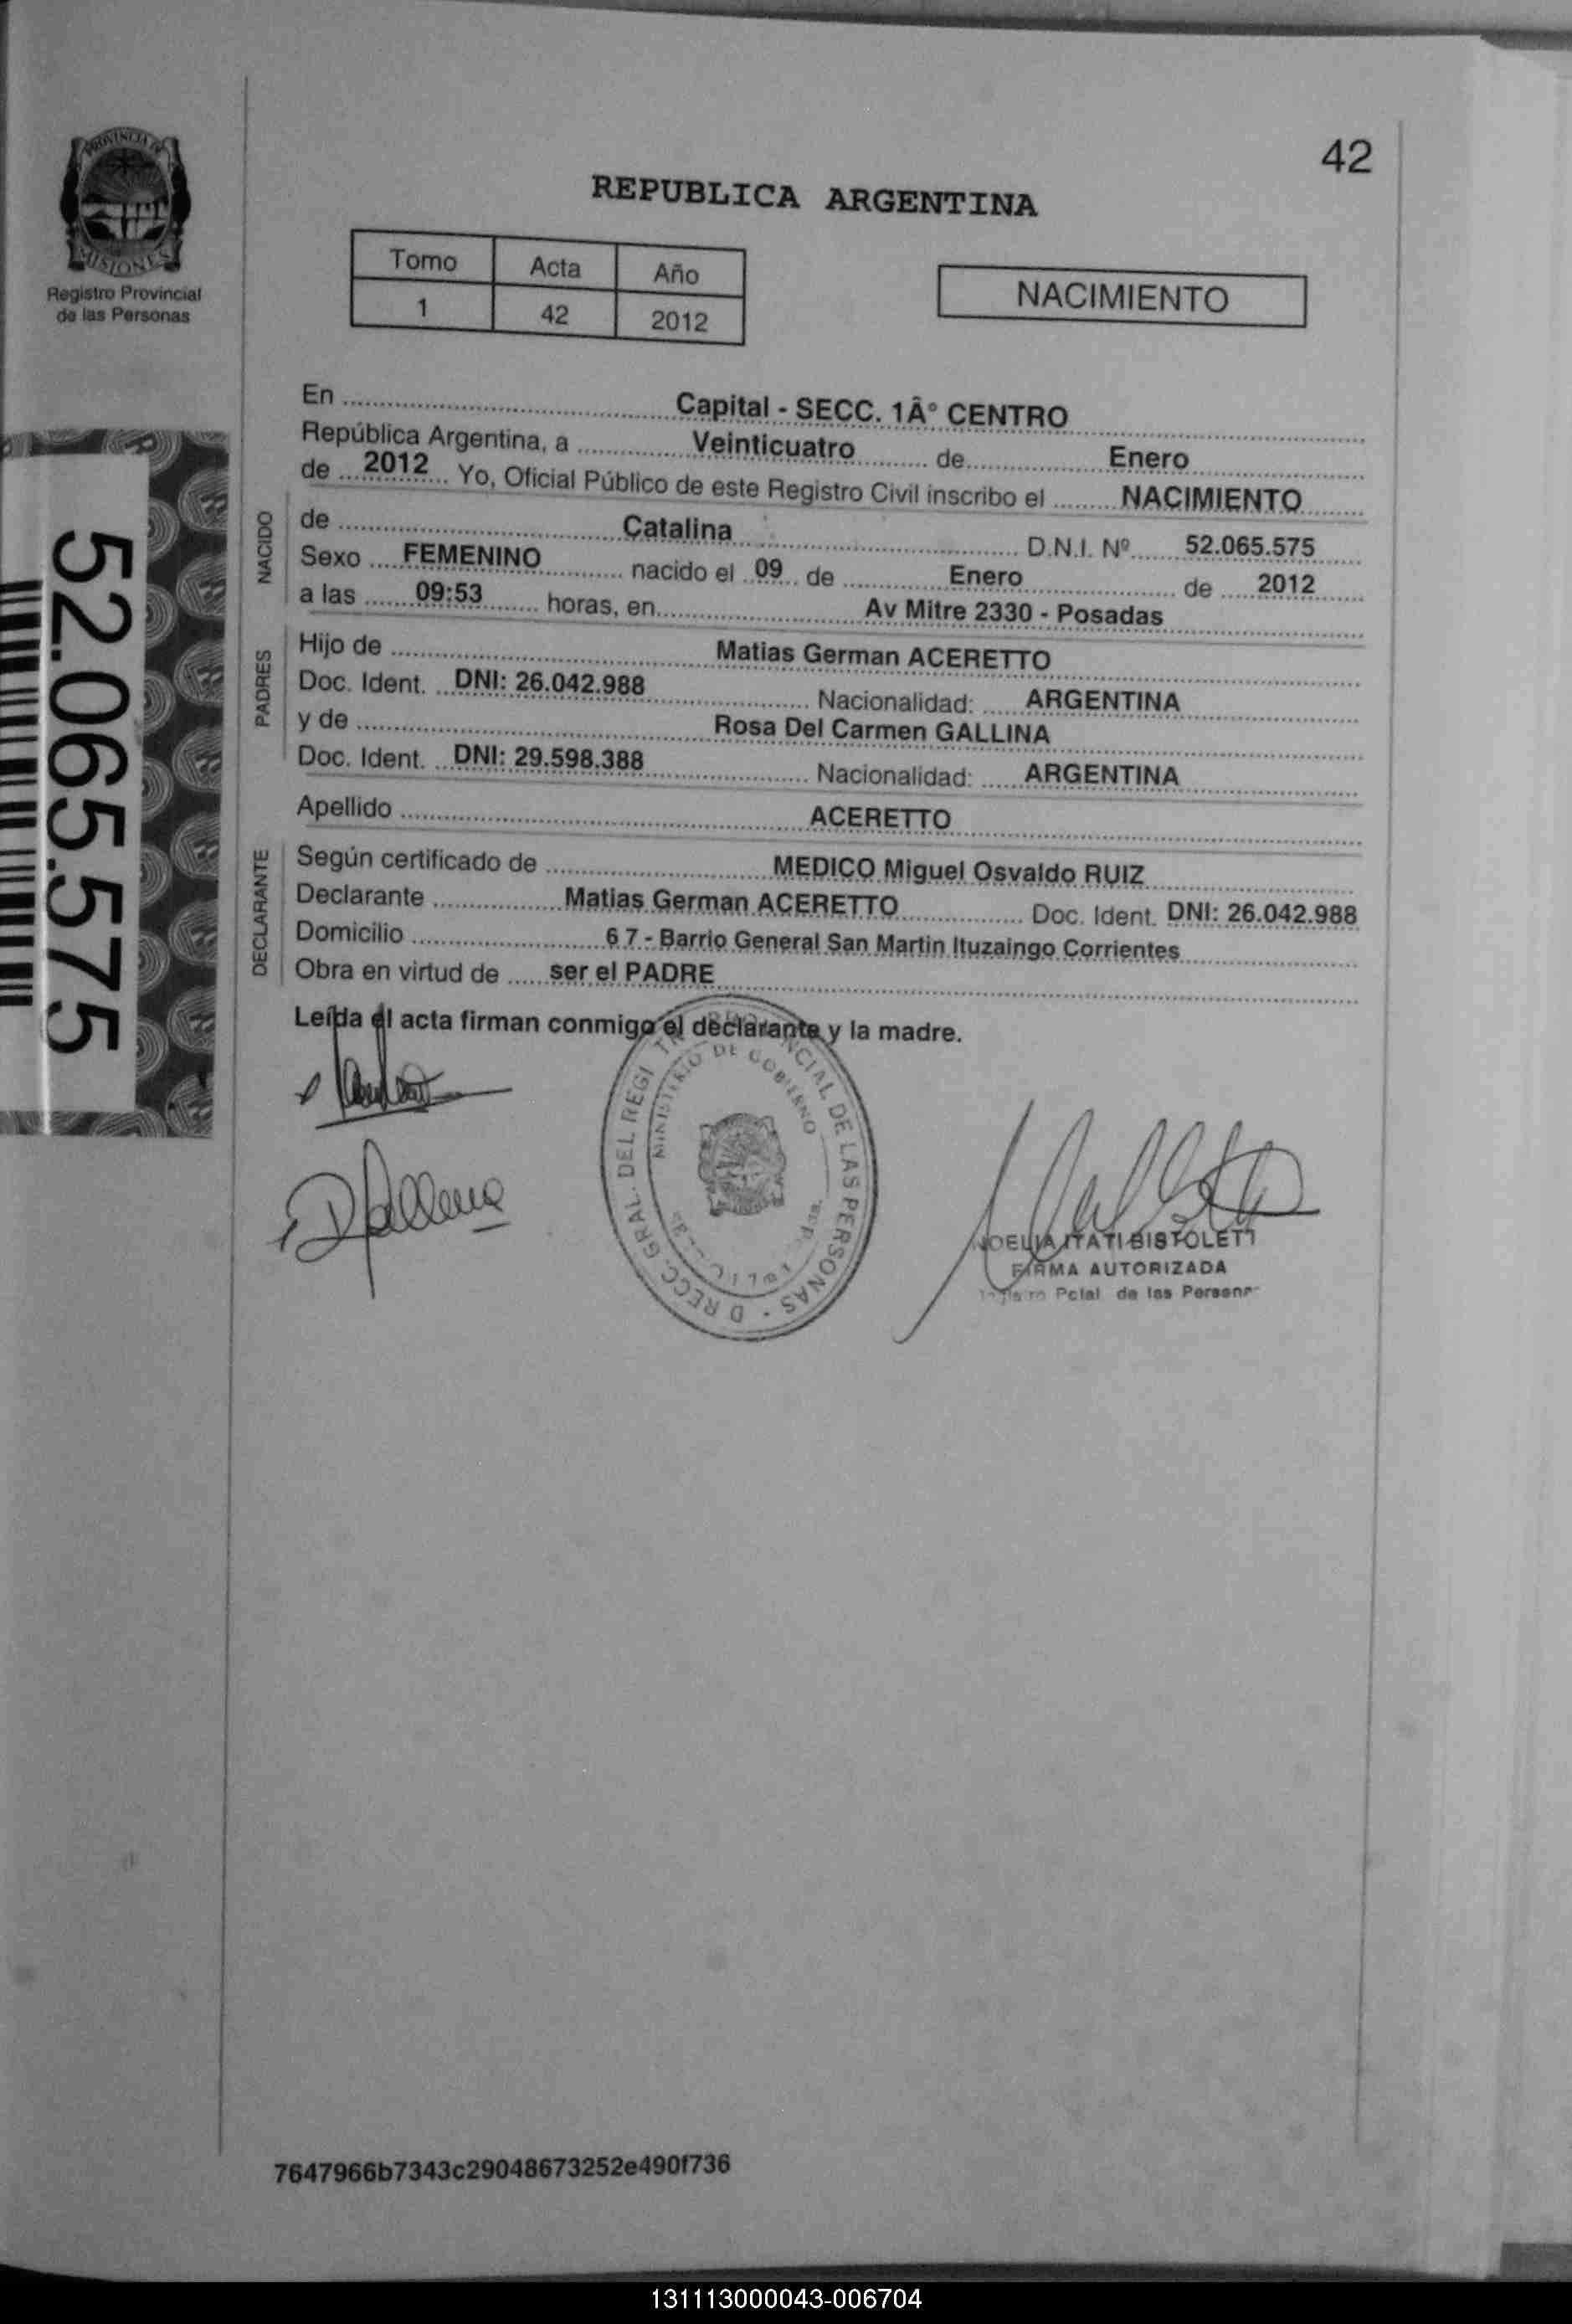 42
PROVINCIA DE
MISIONES
Registro Provincial
de las Personas
REPUBLICA ARGENTINA
Tomo Acta Año
1 42 2012
NACIMIENTO
En Capital - SECC. 1Â° CENTRO
República Argentina, a Veinticuatro de Enero
de 2012 Yo, Oficial Público de este Registro Civil inscribo el NACIMIENTO
NACIDO
de Catalina D.N.I. Nº 52.065.575
Sexo FEMENINO nacido el 09 de Enero de 2012
a las 09:53 horas, en Av Mitre 2330 - Posadas
PADRES
Hijo de Matias German ACERETTO
Doc. Ident. DNI: 26.042.988 Nacionalidad: ARGENTINA
y de Rosa Del Carmen GALLINA
Doc. Ident. DNI: 29.598.388 Nacionalidad: ARGENTINA
Apellido ACERETTO
DECLARANTE
Según certificado de MEDICO Miguel Osvaldo RUIZ
Declarante Matias German ACERETTO Doc. Ident. DNI: 26.042.988
Domicilio 6 7 - Barrio General San Martin Ituzaingo Corrientes
Obra en virtud de ser el PADRE
Leída el acta firman conmigo el declarante y la madre.
52.065.575
GRAL. DEL REGI PROVINCIAL DE LAS PERSONAS
MINISTERIO DE GOBIERNO
NOELIA ITATI BISTOLETTI
FIRMA AUTORIZADA
Pcial de las Person
7647966b7343c29048673252e490f736
131113000043-006704